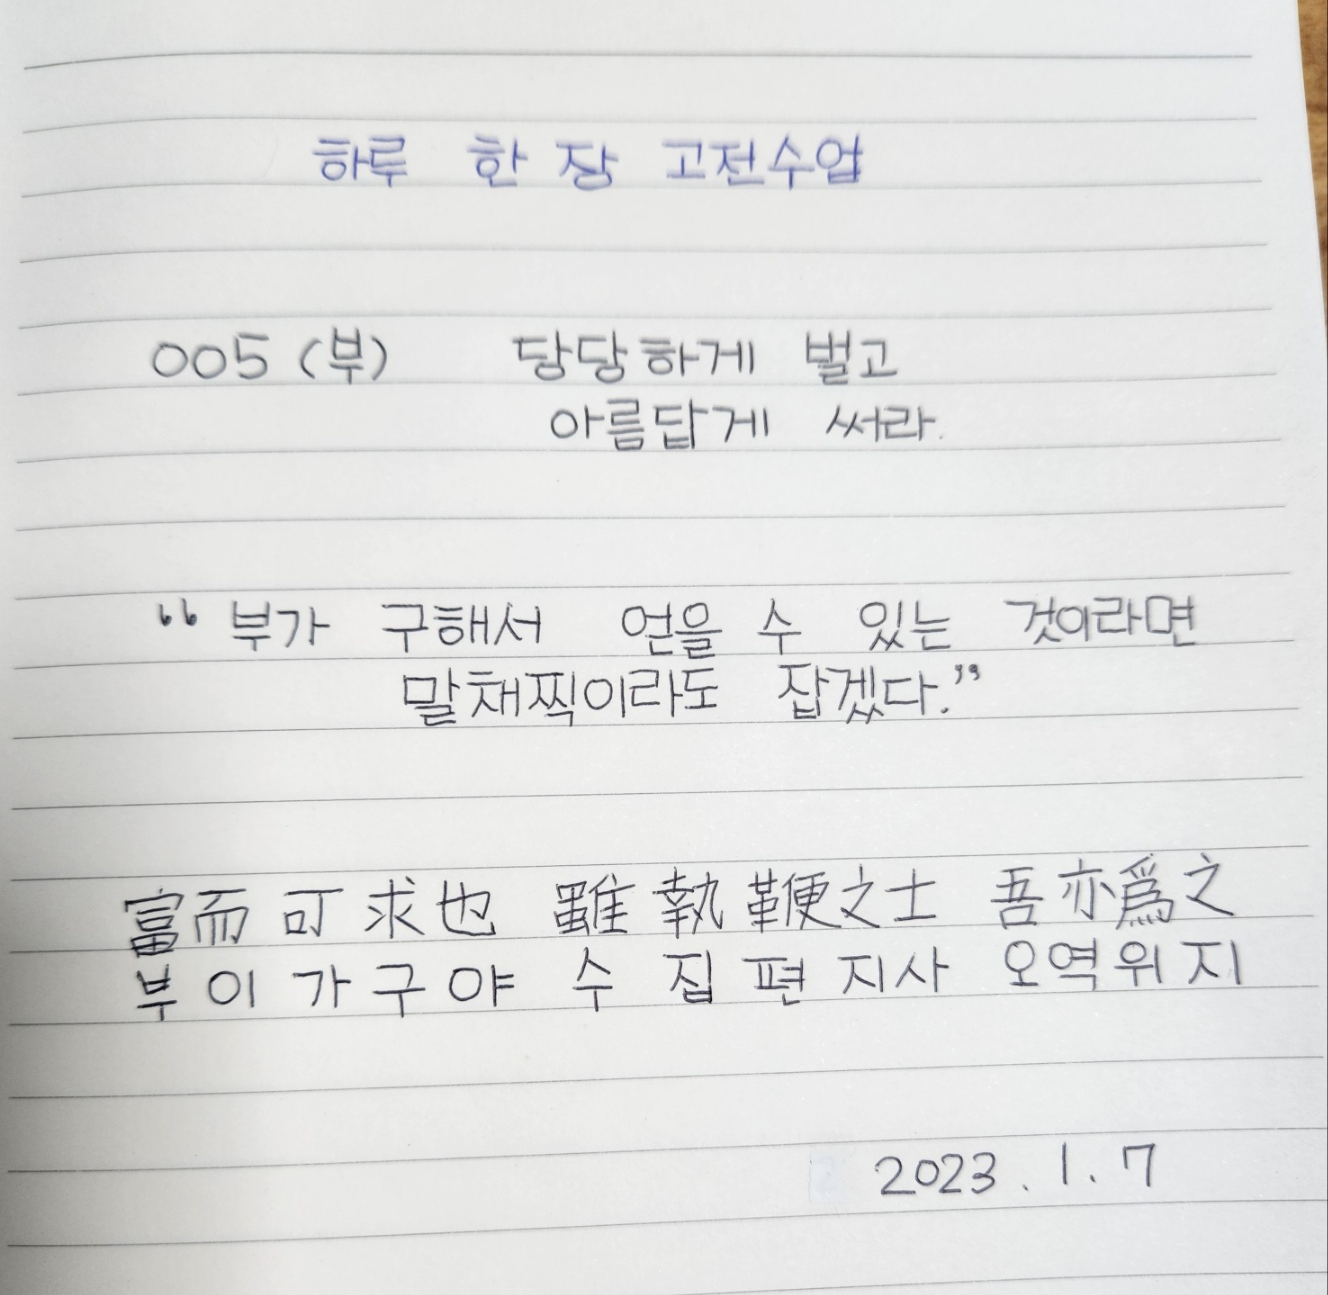 하루 한 장 고전수업
005 (부) 당당하게 벌고
아름답게 써라.
“부가 구해서 얻을 수 있는 것이라면
말채찍이라도 잡겠다.”
富而可求也 雖執鞭之士 吾亦爲之
부이가구야 수집편지사 오역위지
2023.1.7